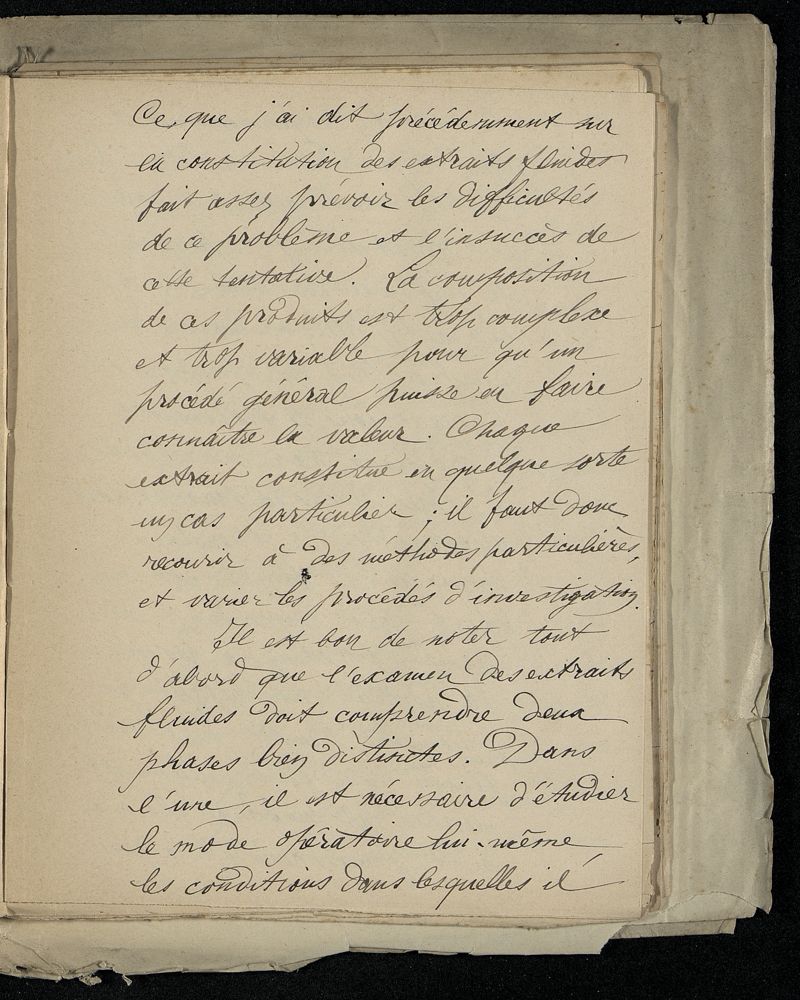 Ce que j'ai dit précédemment sur
la constitution des extraits fluides
fait assez prévoir les difficultés
de ce problème et l'insuccès de
cette tentative. La composition
de ces produits est trop complexe
et trop variable pour qu'un
procédé général puisse en faire
connaître la valeur. Chaque
extrait constitue en quelque sorte
un cas particulier ; il faut donc
recourir à des méthodes particulières,
et varier les procédés d'investigation.
Il est bon de noter tout
d'abord que l'examen des extraits
fluides doit comprendre deux
phases bien distinctes. Dans
l'une, il est nécessaire d'étudier
le mode opératoire lui-même,
les conditions dans lesquelles il